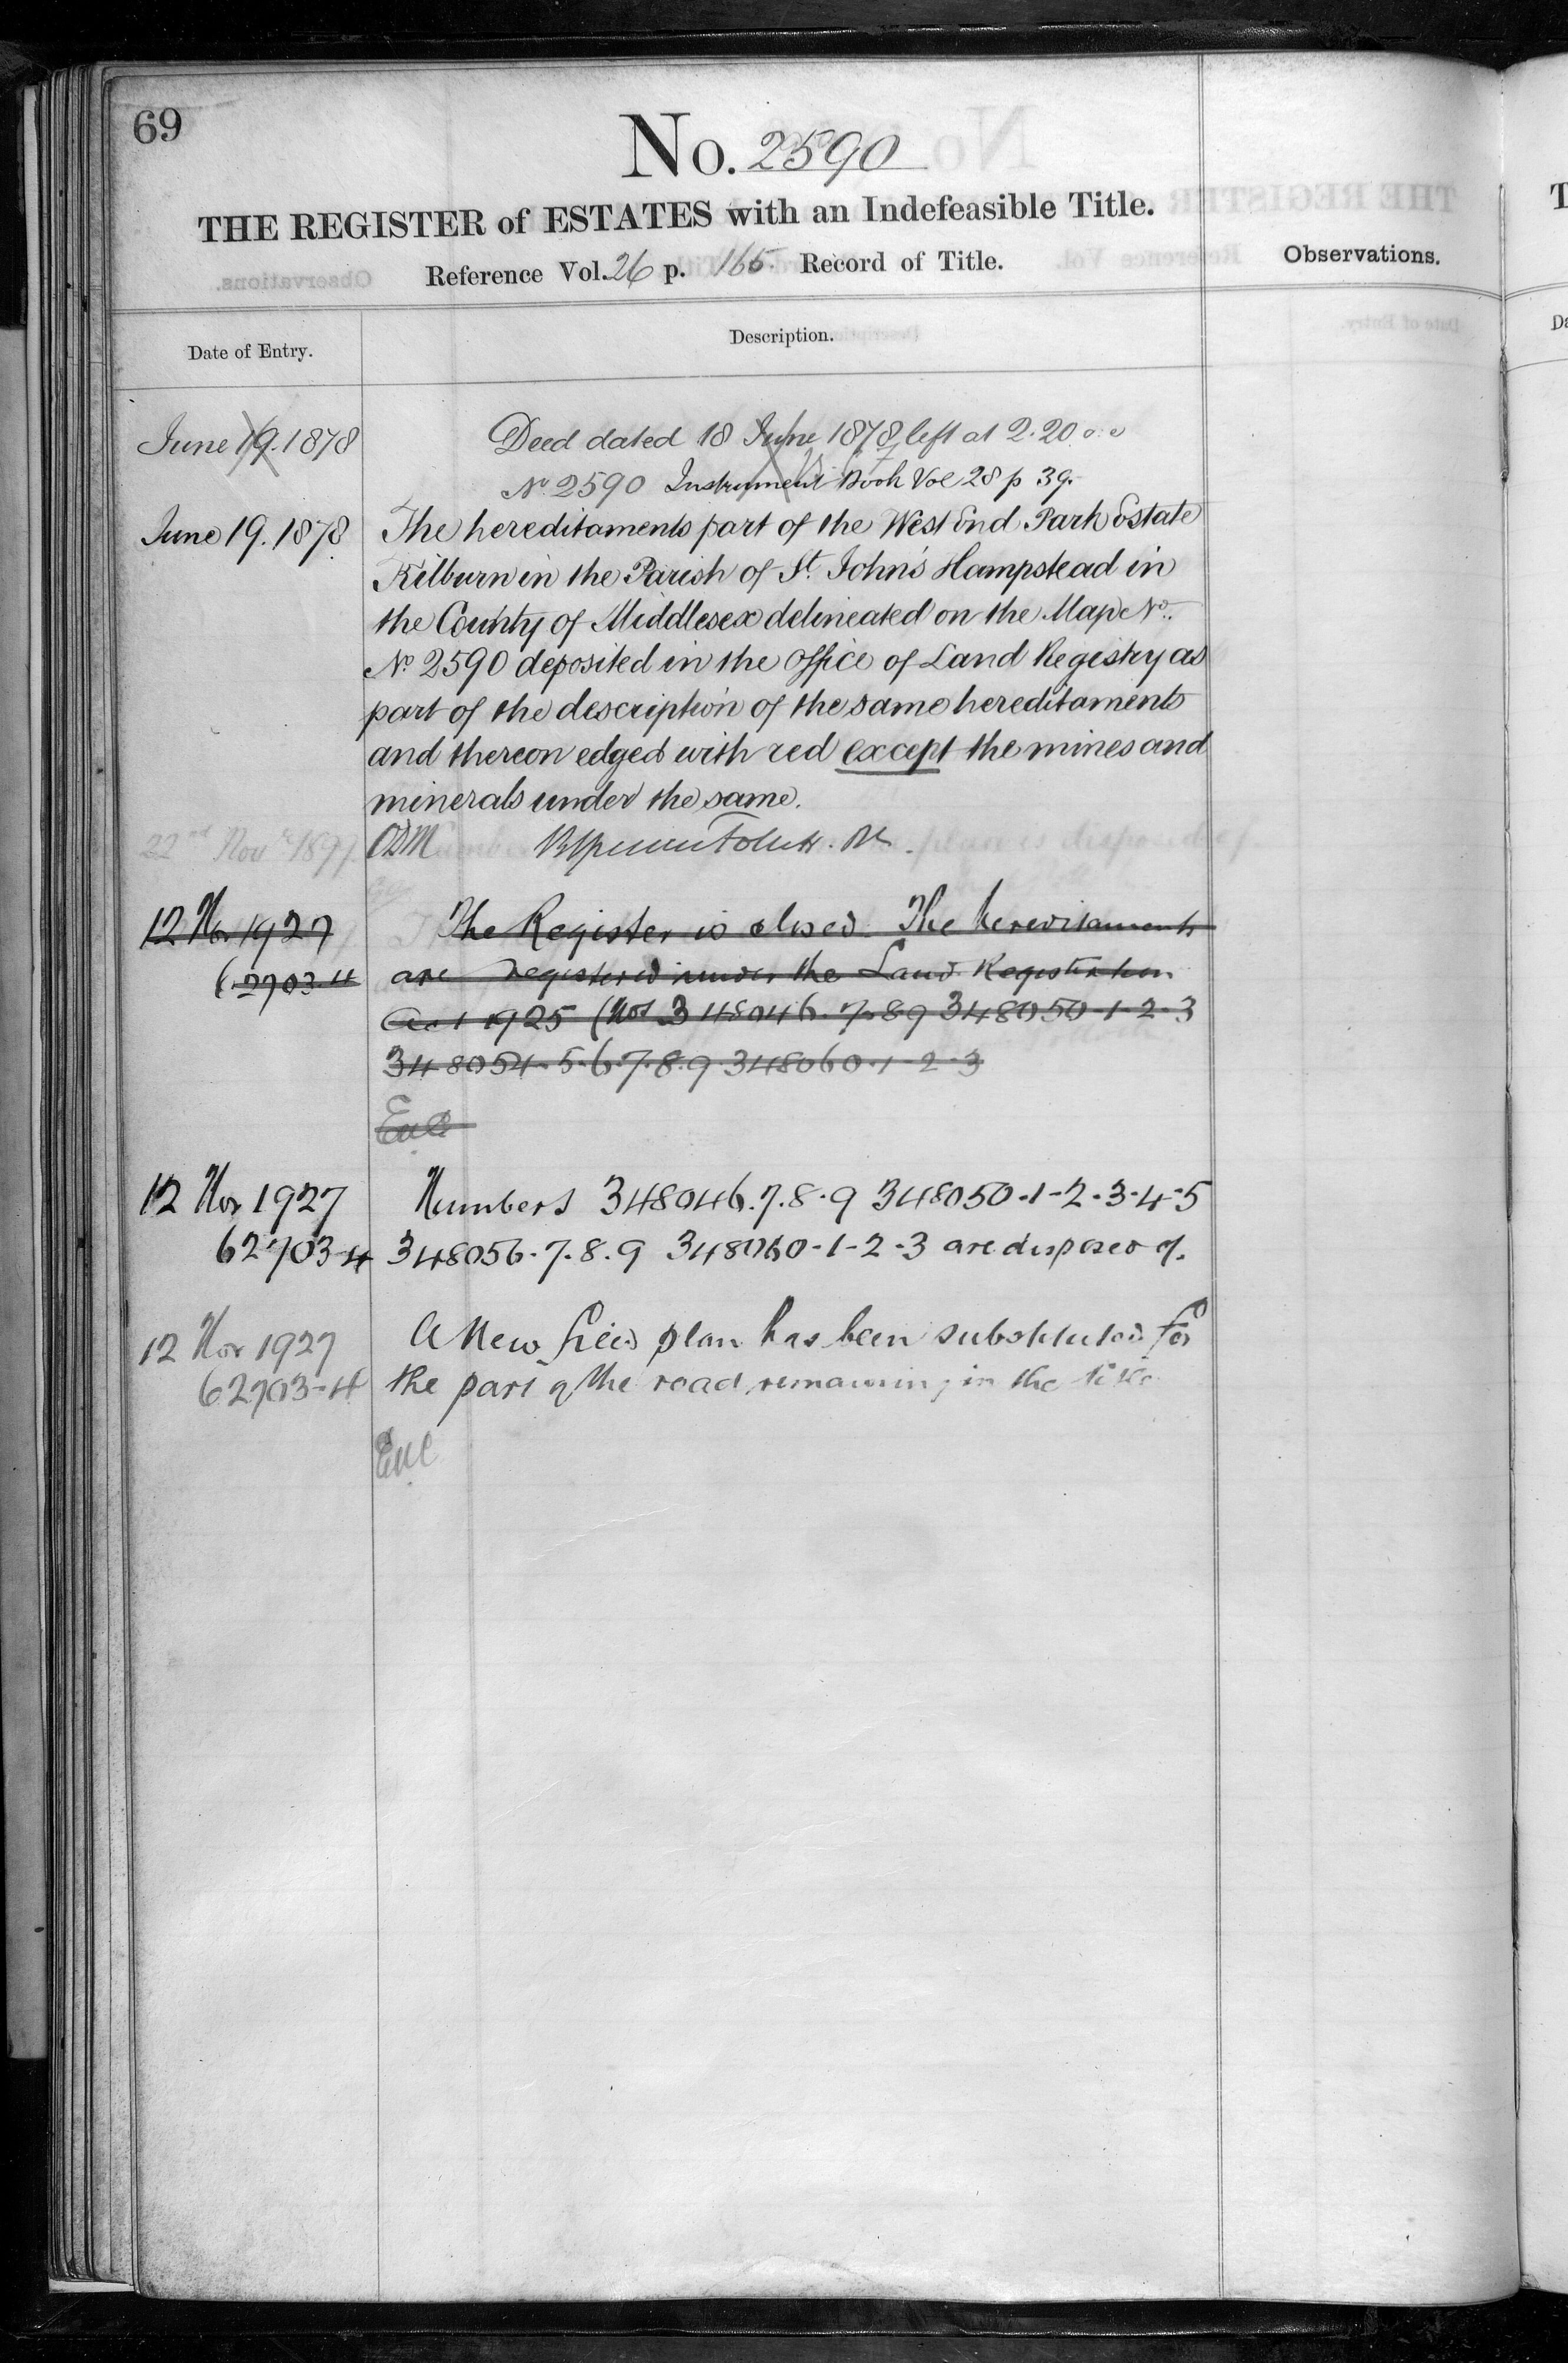 69
No. 2590
THE REGISTER of ESTATES with an Indefeasible Title.
Reference Vol. 26 p. 165. Record of Title.
Observations.
Date of Entry.
Description.
June 19. 1878
Deed dated 18 June 1878 left at 2.20
No 2590 Instrument Book Vol 28 p 39.
June 19. 1878
The hereditaments part of the West End Park Estate
Kilburn in the Parish of St. John's Hampstead in
the County of Middlesex delineated on the Map No.
No 2590 deposited in the office of Land Registry as
part of the description of the same hereditaments
and thereon edged with red except the mines and
minerals under the same.
22nd Novr 1897
12 Nov 1927
The Register is closed. The hereditaments
62703-4
are registered under the Land Registration
Act 1925 (Nos 348046.7.8.9 348050-1-2-3
348054-5-6-7.8.9.348060-1-2-3
12 Nov 1927
Numbers 348046.7.8.9 348050-1-2-3-4-5
62703-4
348056.7.8.9 348060-1-2-3 are disposed of.
12 Nov 1927
A New filed plan has been substituted for
62703-4
the part of the road remaining in the title